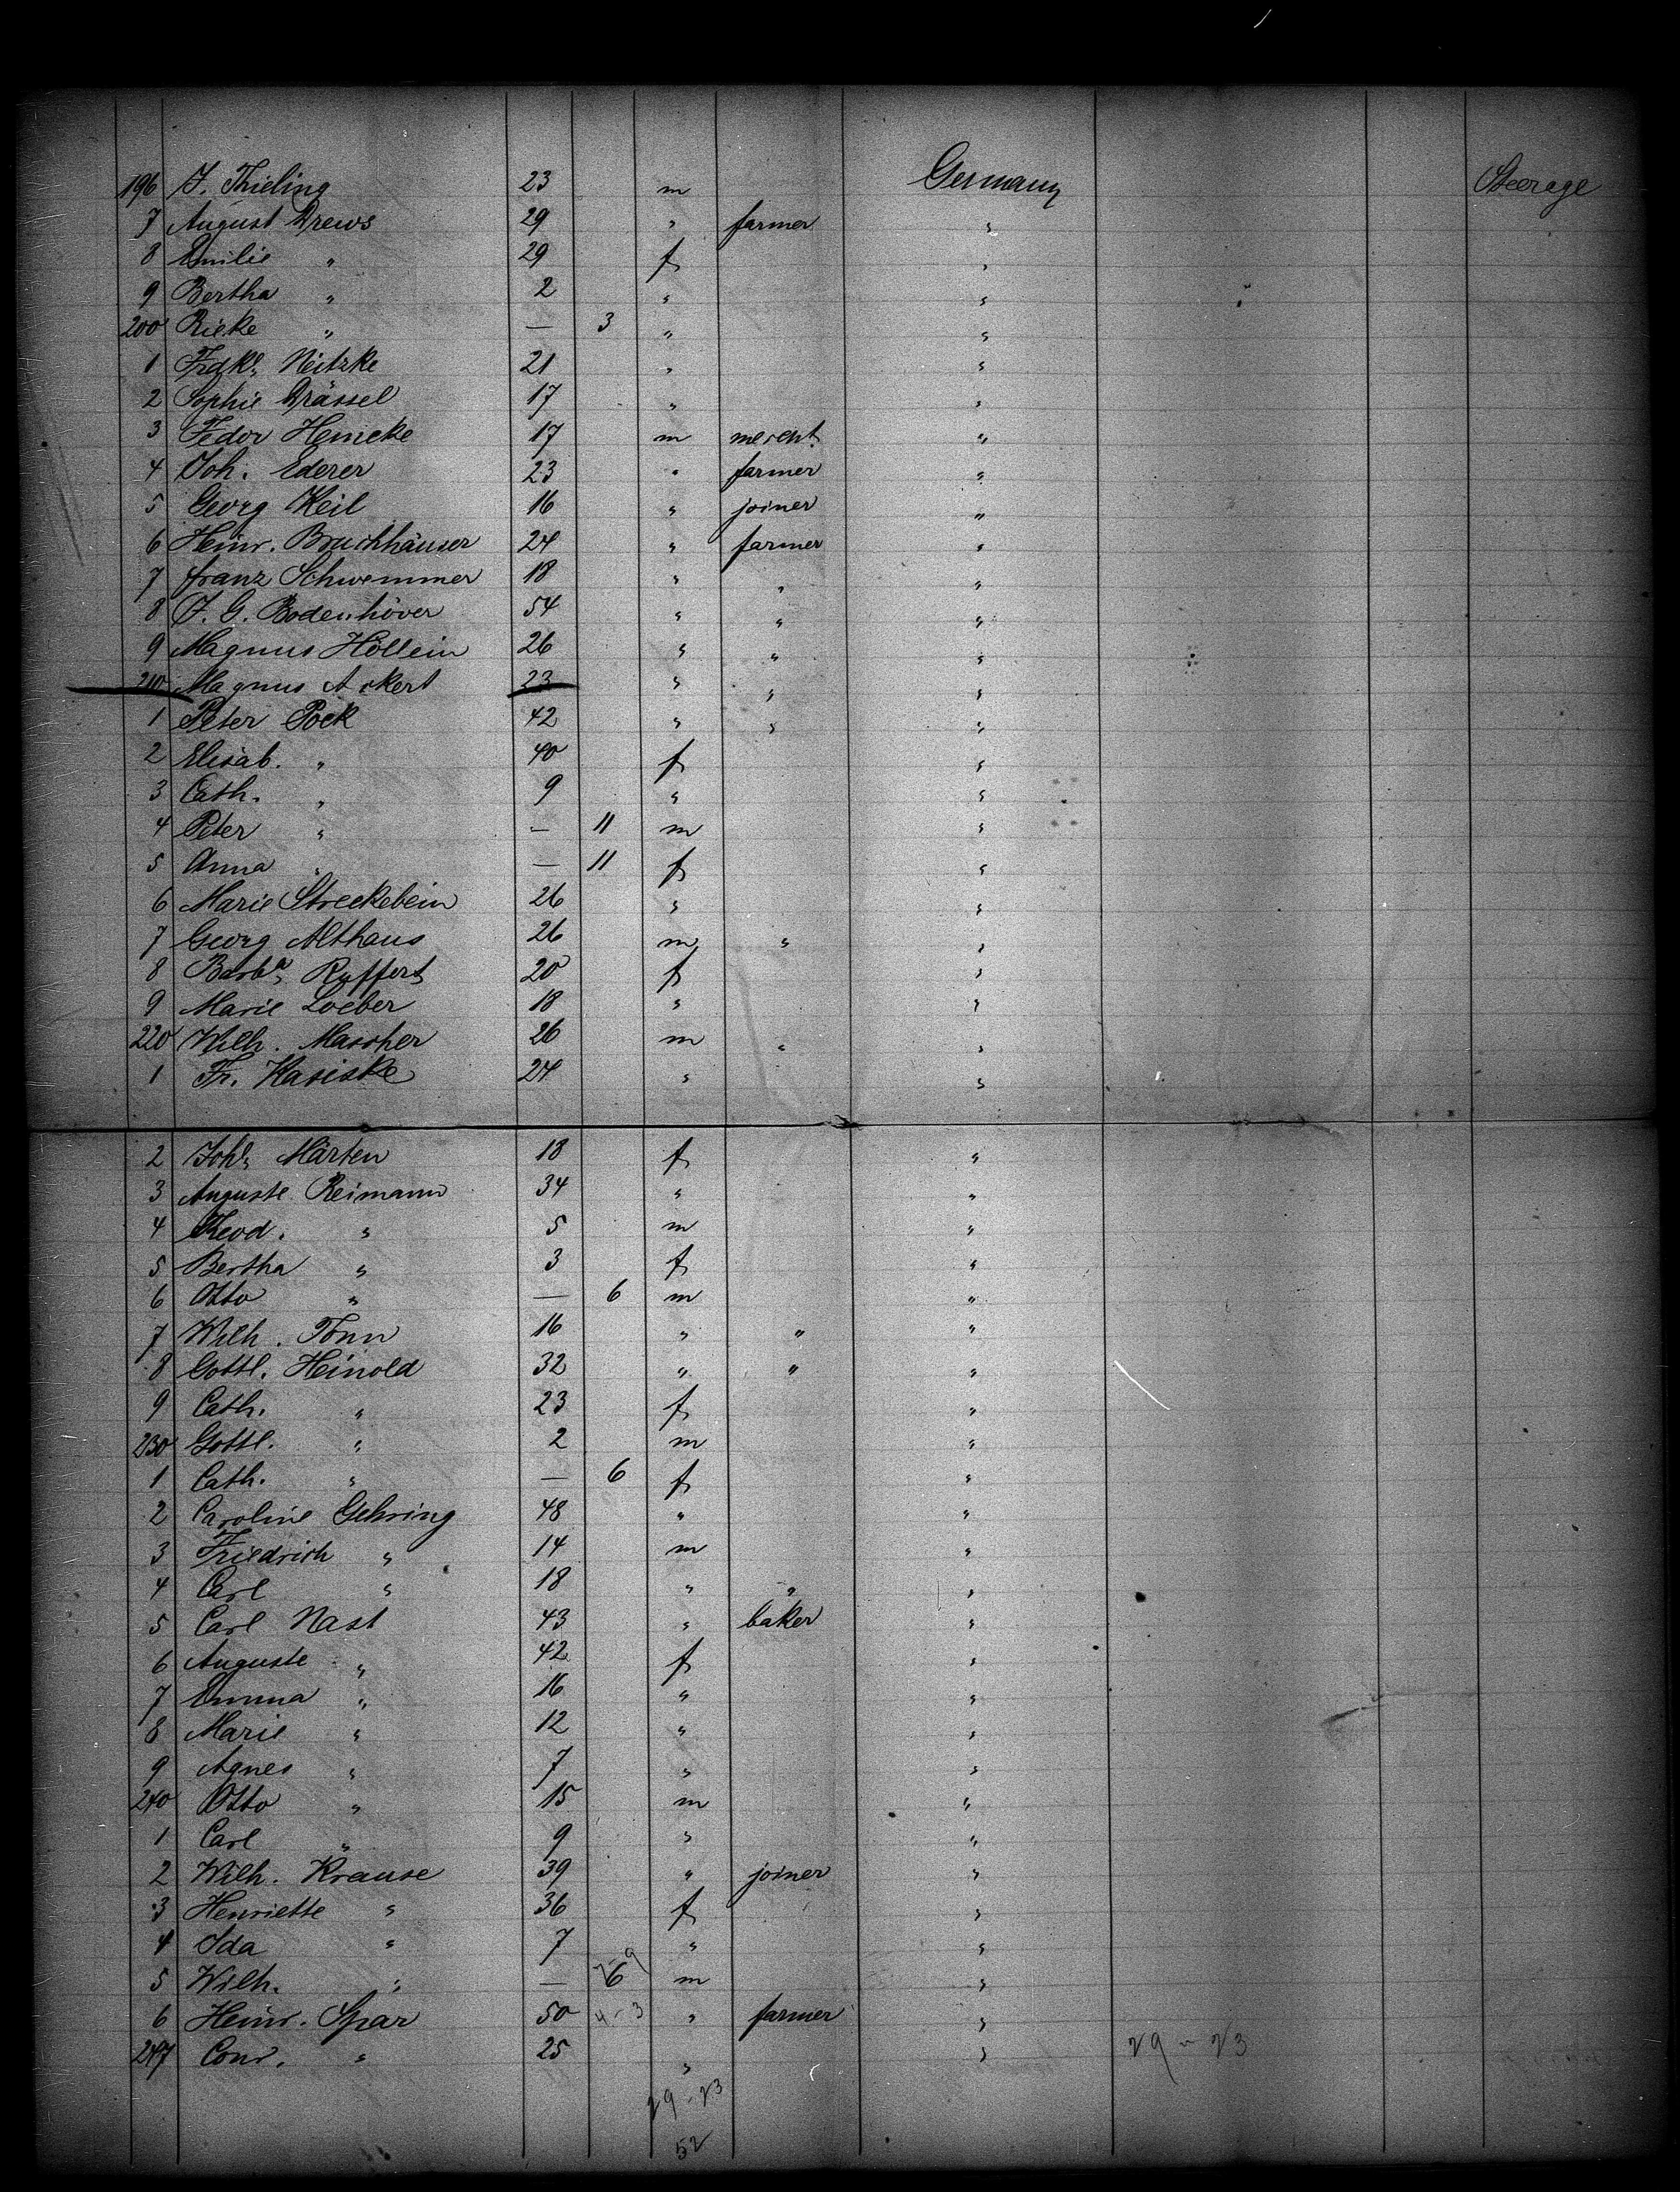 196 J. Thieling 23 m Germany Steerage
7 August Drews 29 " farmer "
8 Emilie " 29 f "
9 Bertha " 2 " "
200 Rieke " — 3 " "
1 Fredke Neitzke 21 " "
2 Sophie Drässel 17 " "
3 Fedor Henicke 17 m mercht. "
4 Joh. Ederer 23 " farmer "
5 Georg Keil 16 " joiner "
6 Heinr. Bruchhäuser 24 " farmer "
7 Franz Schwemmer 18 " " "
8 J. G. Bodenhöver 54 " " "
9 Magnus Höllein 26 " " "
210 Magnus Ackert 23 " " "
1 Peter Pock 42 " " "
2 Elisab. " 40 f "
3 Cath. " 9 " "
4 Peter " — 11 m "
5 Anna " — 11 f "
6 Marie Streckebein 26 " "
7 Georg Althaus 26 m " "
8 Barba Ruffert 20 f "
9 Marie Loeber 18 " "
220 Wilh. Mascher 26 m " "
1 Fr. Kasiske 24 " "
2 Johe Märten 18 f "
3 Auguste Reimann 34 " "
4 Theod. " 5 m "
5 Bertha " 3 f "
6 Otto " — 6 m "
7 Wilh. Tonn 16 " " "
8 Gottl. Heinold 32 " " "
9 Cath. " 23 f "
230 Gottl. " 2 m "
1 Cath. " — 6 f "
2 Caroline Gehring 48 " "
3 Friedrich " 14 m "
4 Carl " 18 " " "
5 Carl Nast 43 " baker "
6 Auguste " 42 f "
7 Emma " 16 " "
8 Marie " 12 " "
9 Agnes " 7 " "
240 Otto " 15 m "
1 Carl " 9 " "
2 Wilh. Krause 39 " joiner "
3 Henriette " 36 f "
4 Ida " 7 " "
5 Wilh. " — 6 m "
6 Heinr. Spar 50 4-3 " farmer "
247 Conr. " 25 " " 29-23
29-23
52